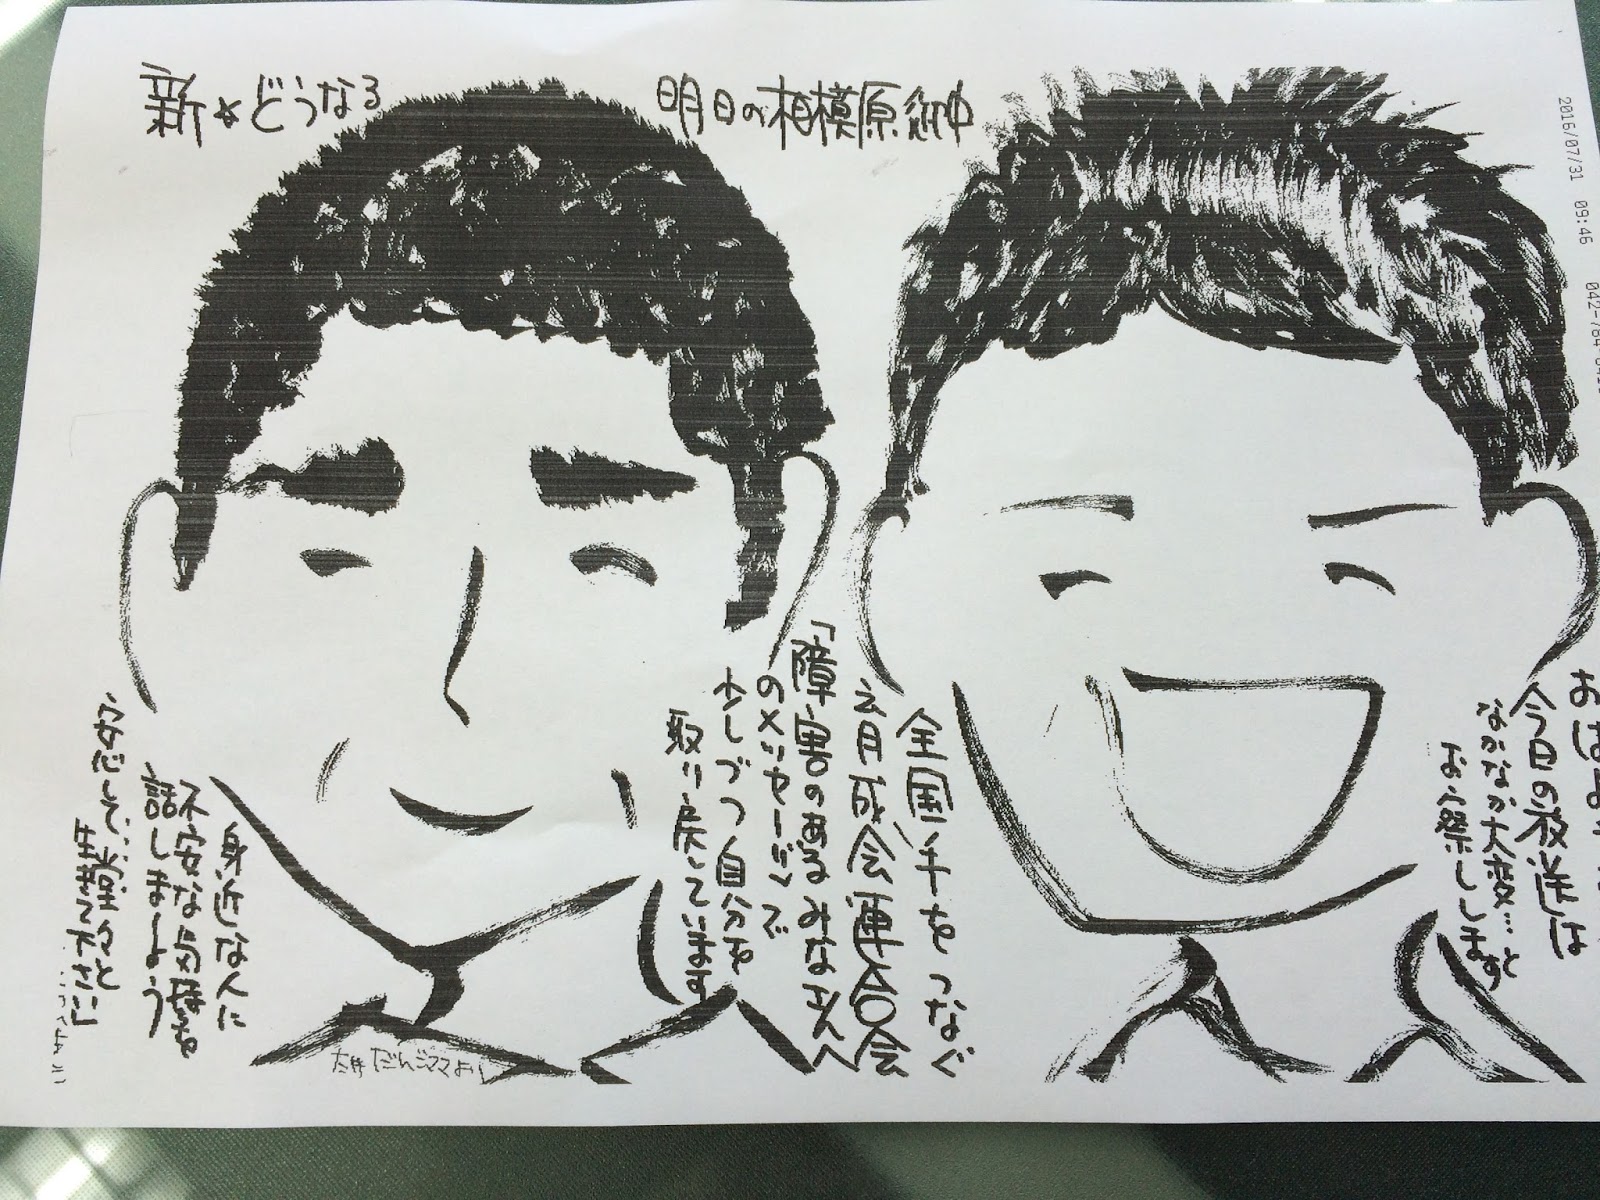 新☆どうなる
明日の相模原
2016/07/31 09:46 042-784-
今日の放送は
なかなか大変…と
お察しします
全国、手をつなぐ
育成会連合会
「障害のあるみなさんへ
のメッセージ」で
少しづつ自分を
取り戻しています
身近な人に
不安な
話しましょう
安心して堂々と
生きてください」
だんごママより